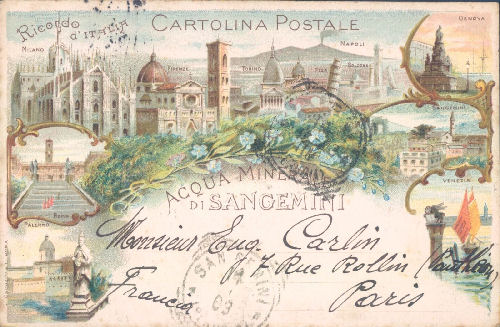 Ricordo
d'ITALIA
CARTOLINA POSTALE
MILANO
FIRENZE
TORINO
NAPOLI
PISA
BOLOGNA
GENOVA
SANGEMINI
ROMA
PALERMO
VENEZIA
ACQUA MINERALE
DI SANGEMINI
Monsieur Eug. Carlin
7 Rue Rollin
Francia
Paris
SAN